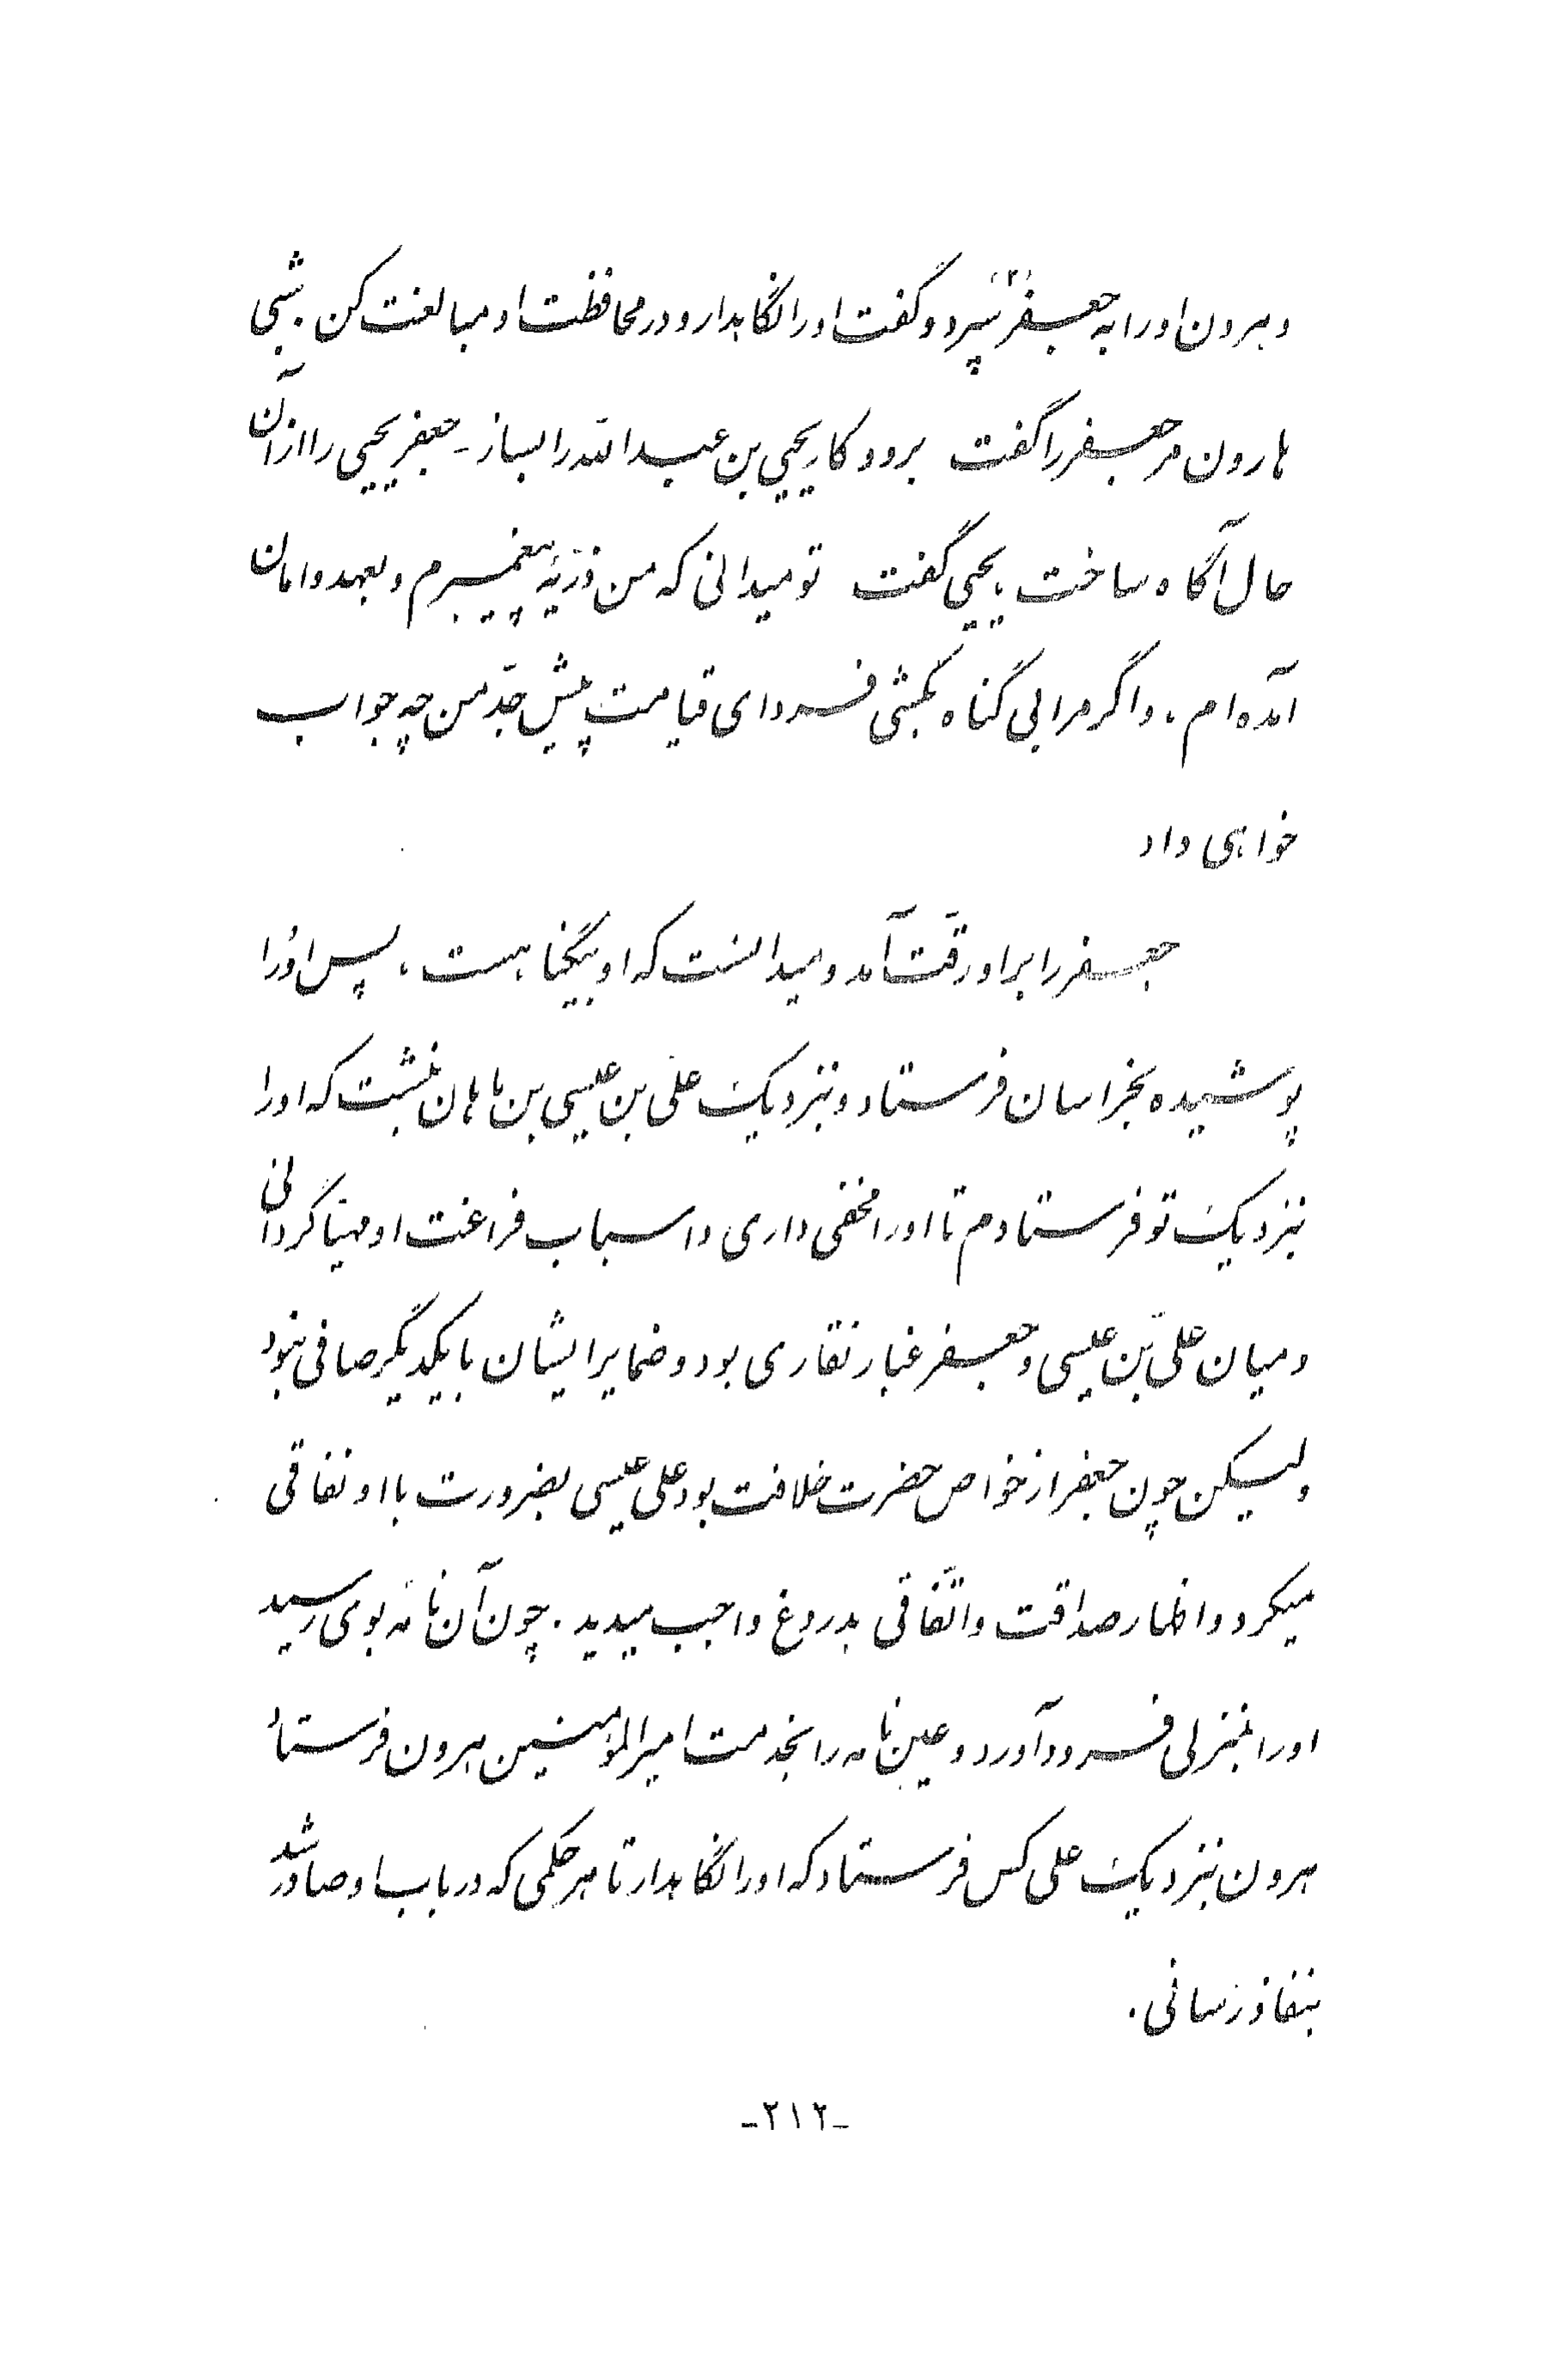 و هرون او را به جعفر سپرد و گفت او را نگاهدار و در محافظت او مبالغت کن . شبی
هارون مر جعفر را گفت برو و کار یحیی بن عبدالله را بساز - جعفر یحیی را از آن
حال آگاه ساخت ، یحیی گفت تو میدانی که من ذریّهٔ پیغمبرم و بعهد و امان
آمده‌ام ، و اگر مرا بی گناه بکشی فردای قیامت پیش جدّ من چه جواب
خواهی داد
جعفر را بر او رقّت آمد و میدانست که او بیگناهست ، پس او را
پوشیده بخراسان فرستاد و نزدیک علی بن عیسی بن ماهان نبشت که او را
نزدیک تو فرستادم تا او را مخفی داری و اسباب فراغت او مهیّا گردانی
و میان علی بن عیسی و جعفر غبار نقاری بود و ضمایر ایشان با یکدیگر صافی نبود
ولیکن چون جعفر از خواص حضرت خلافت بود علی عیسی بضرورت با او نفاقی
میکرد و اظهار صداقت و اتّفاقی بدروغ واجب میدید . چون آن نامه بوی رسید
او را بمنزلی فرود آورد و عین نامه را بخدمت امیرالمؤمنین هرون فرستاد
هرون نزدیک علی کس فرستاد که او را نگاهدار تا هر حکمی که در باب او صادر شد
بنفاذ رسانی .
-۲۱۲-